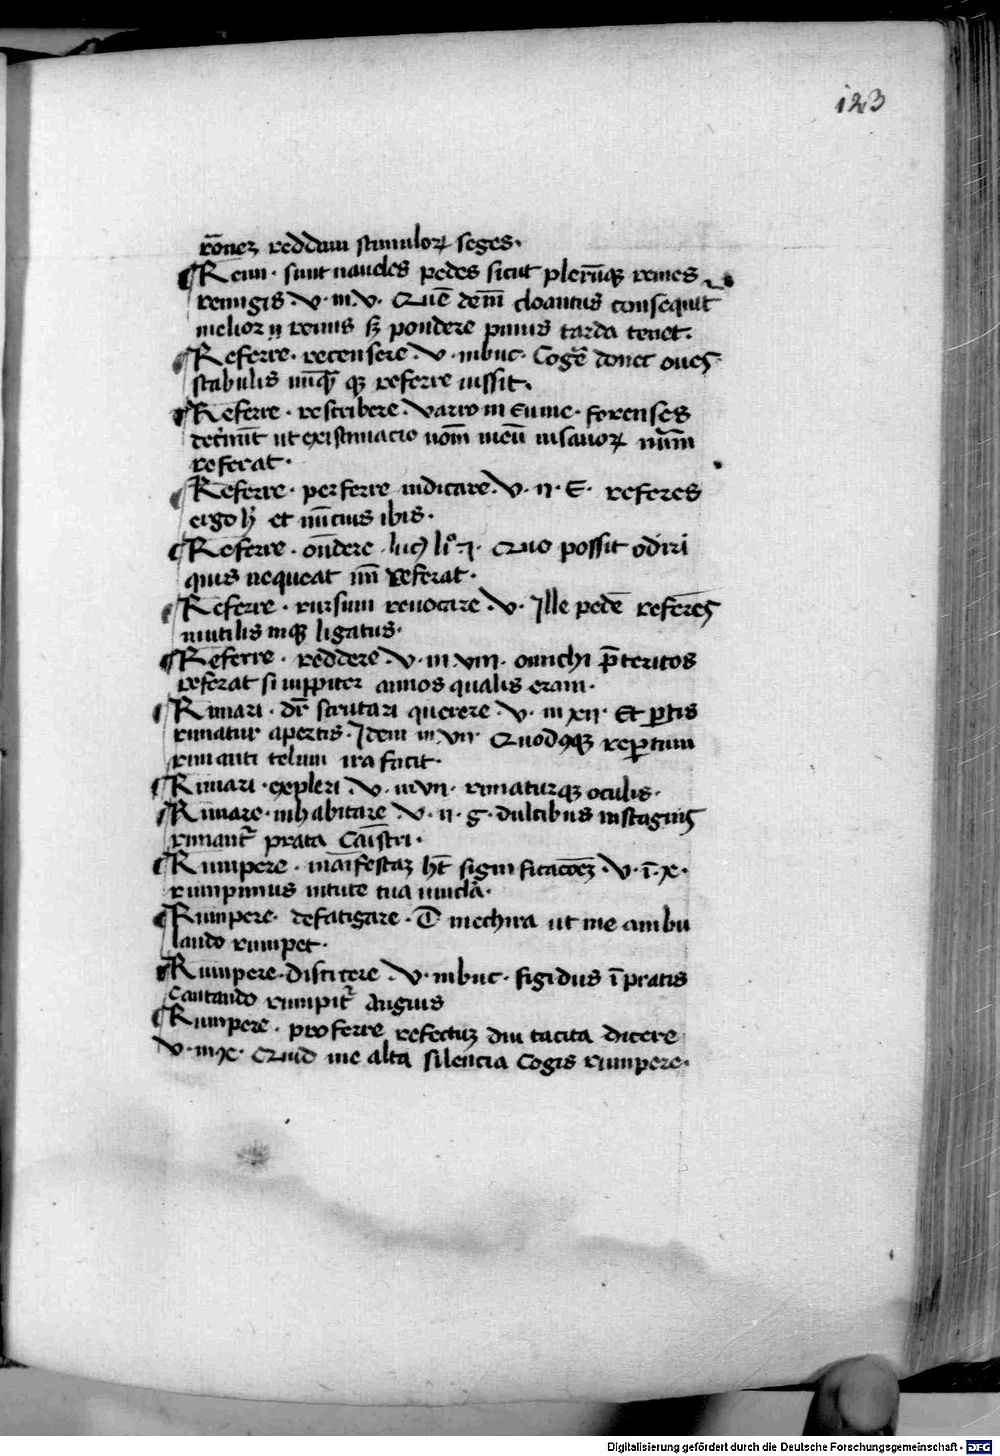 123
rōnez reddam stimuloꝝ seges·
Remi· sunt nauales pedes sicut plerūqꝫ remes
remigis V· in V· Quē dem̄ cloantus consequit
melior remis sꝫ pondere pinus tarda tenet·
Referre· recensere V· in buc· Cogē donec oues
stabulis qꝫ referre iussit·
Referre· rescribere Varro in Eume· forenses
ut existimacio nom̄ meū insanoꝝ nūm
referat·
Referre· perferre indicare V· ii· E· referes
ergo h̄ et nūcius ibis·
Referre· on̄dere luc) li° Quo possit odiri
quis nequeat nn̄ Referat·
Referre· rursum reuocare V· Ille pedē referēs
inutilis inqꝫ ligatus·
Referre· reddere V· in viii· o michi p̄teritos
referat si iuppiter annos qualis eram·
Rimari· dr̄ scrutari querere V· in xii· Et ꝑtis
rimatur apertis· Idem in vii· Quodcūqꝫ repertum
rimanti telum ira facit·
Rimari· expleri V· in vii· rimaturqꝫ oculis·
Rimare· inhabitare V· ii· G· dulcibus in stagnis
rimant᷑ prata Caistri·
Rumpere· manifestaꝫ ht̄ significacōeꝫ V· ī· x·
rumpimus intute tua
Rumpere· defatigare· T mechira ut me ambu
lando rumpet·
Rumpere· discitere V· in buc· frigidus ī pratis
cantando rumpit᷑ Anguis
Rumpere· proferre refectuꝫ diu tacita dicere
V· in x· Quid me alta silencia Cogis rumpere·
Digitalisierung gefördert durch die Deutsche Forschungsgemeinschaft · DFG